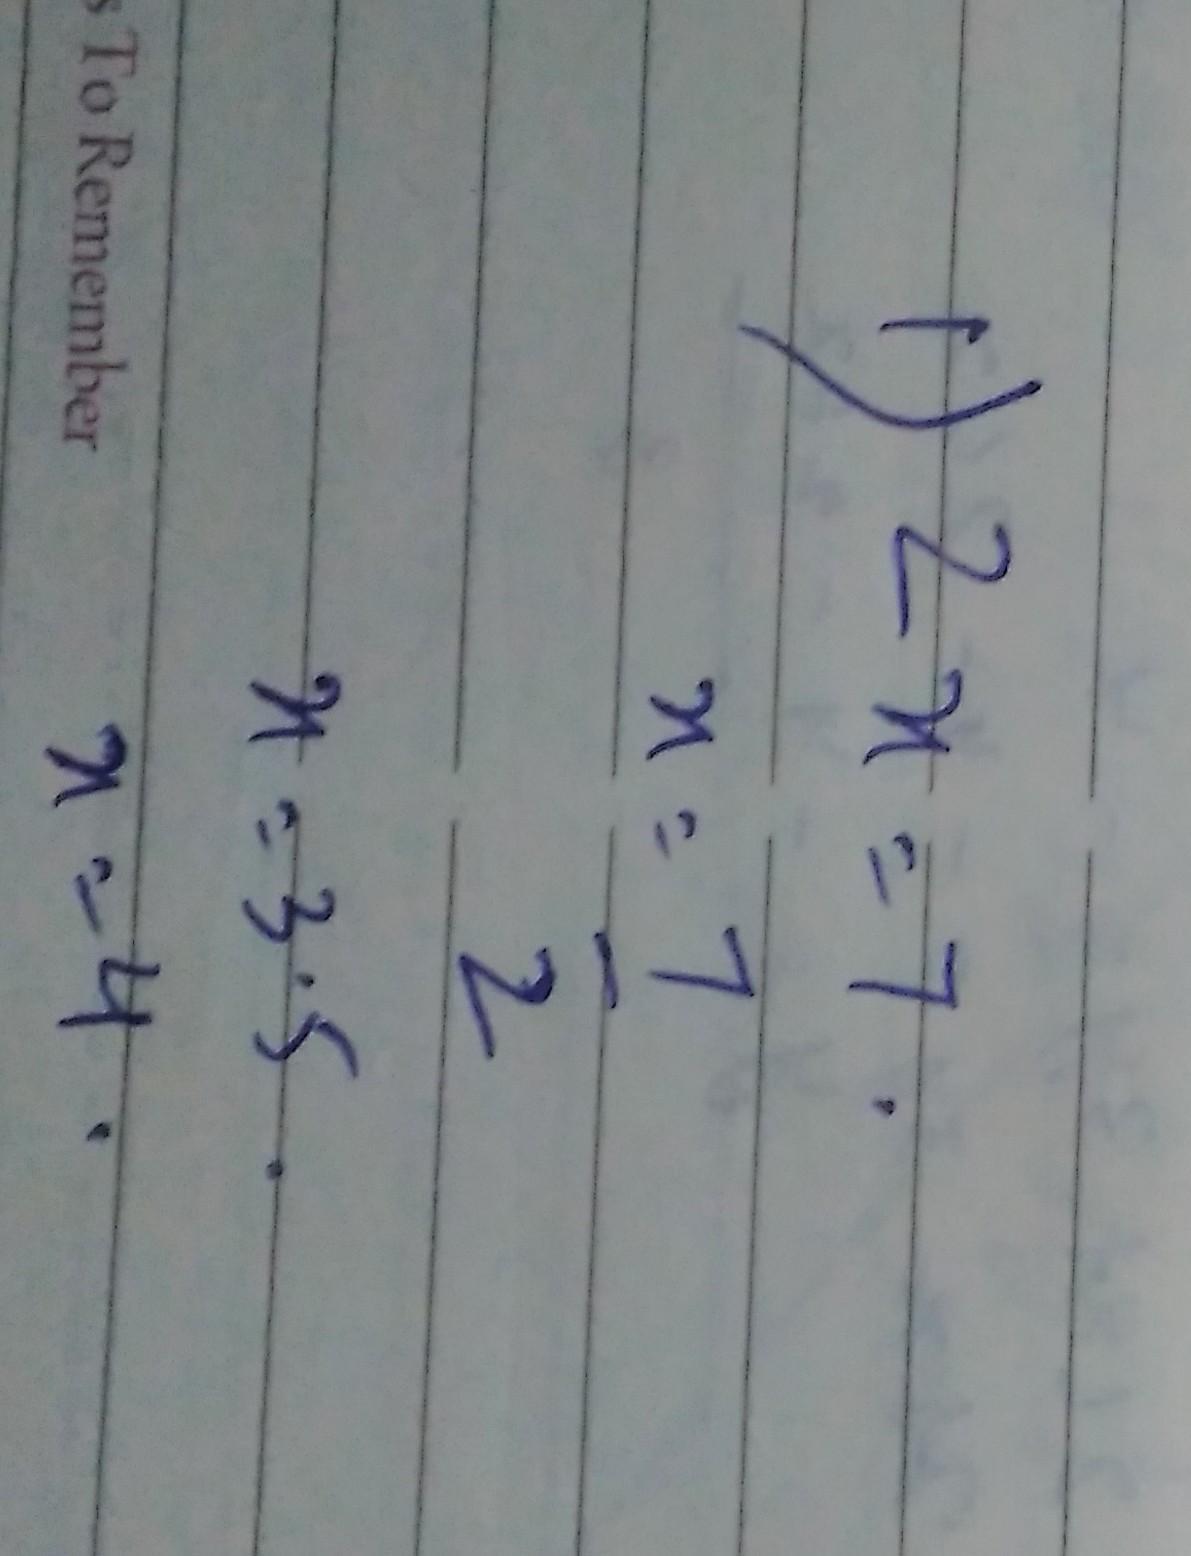 1) 2x = 7.
x = 7
2
x = 3.5.
x = 4.
s To Remember